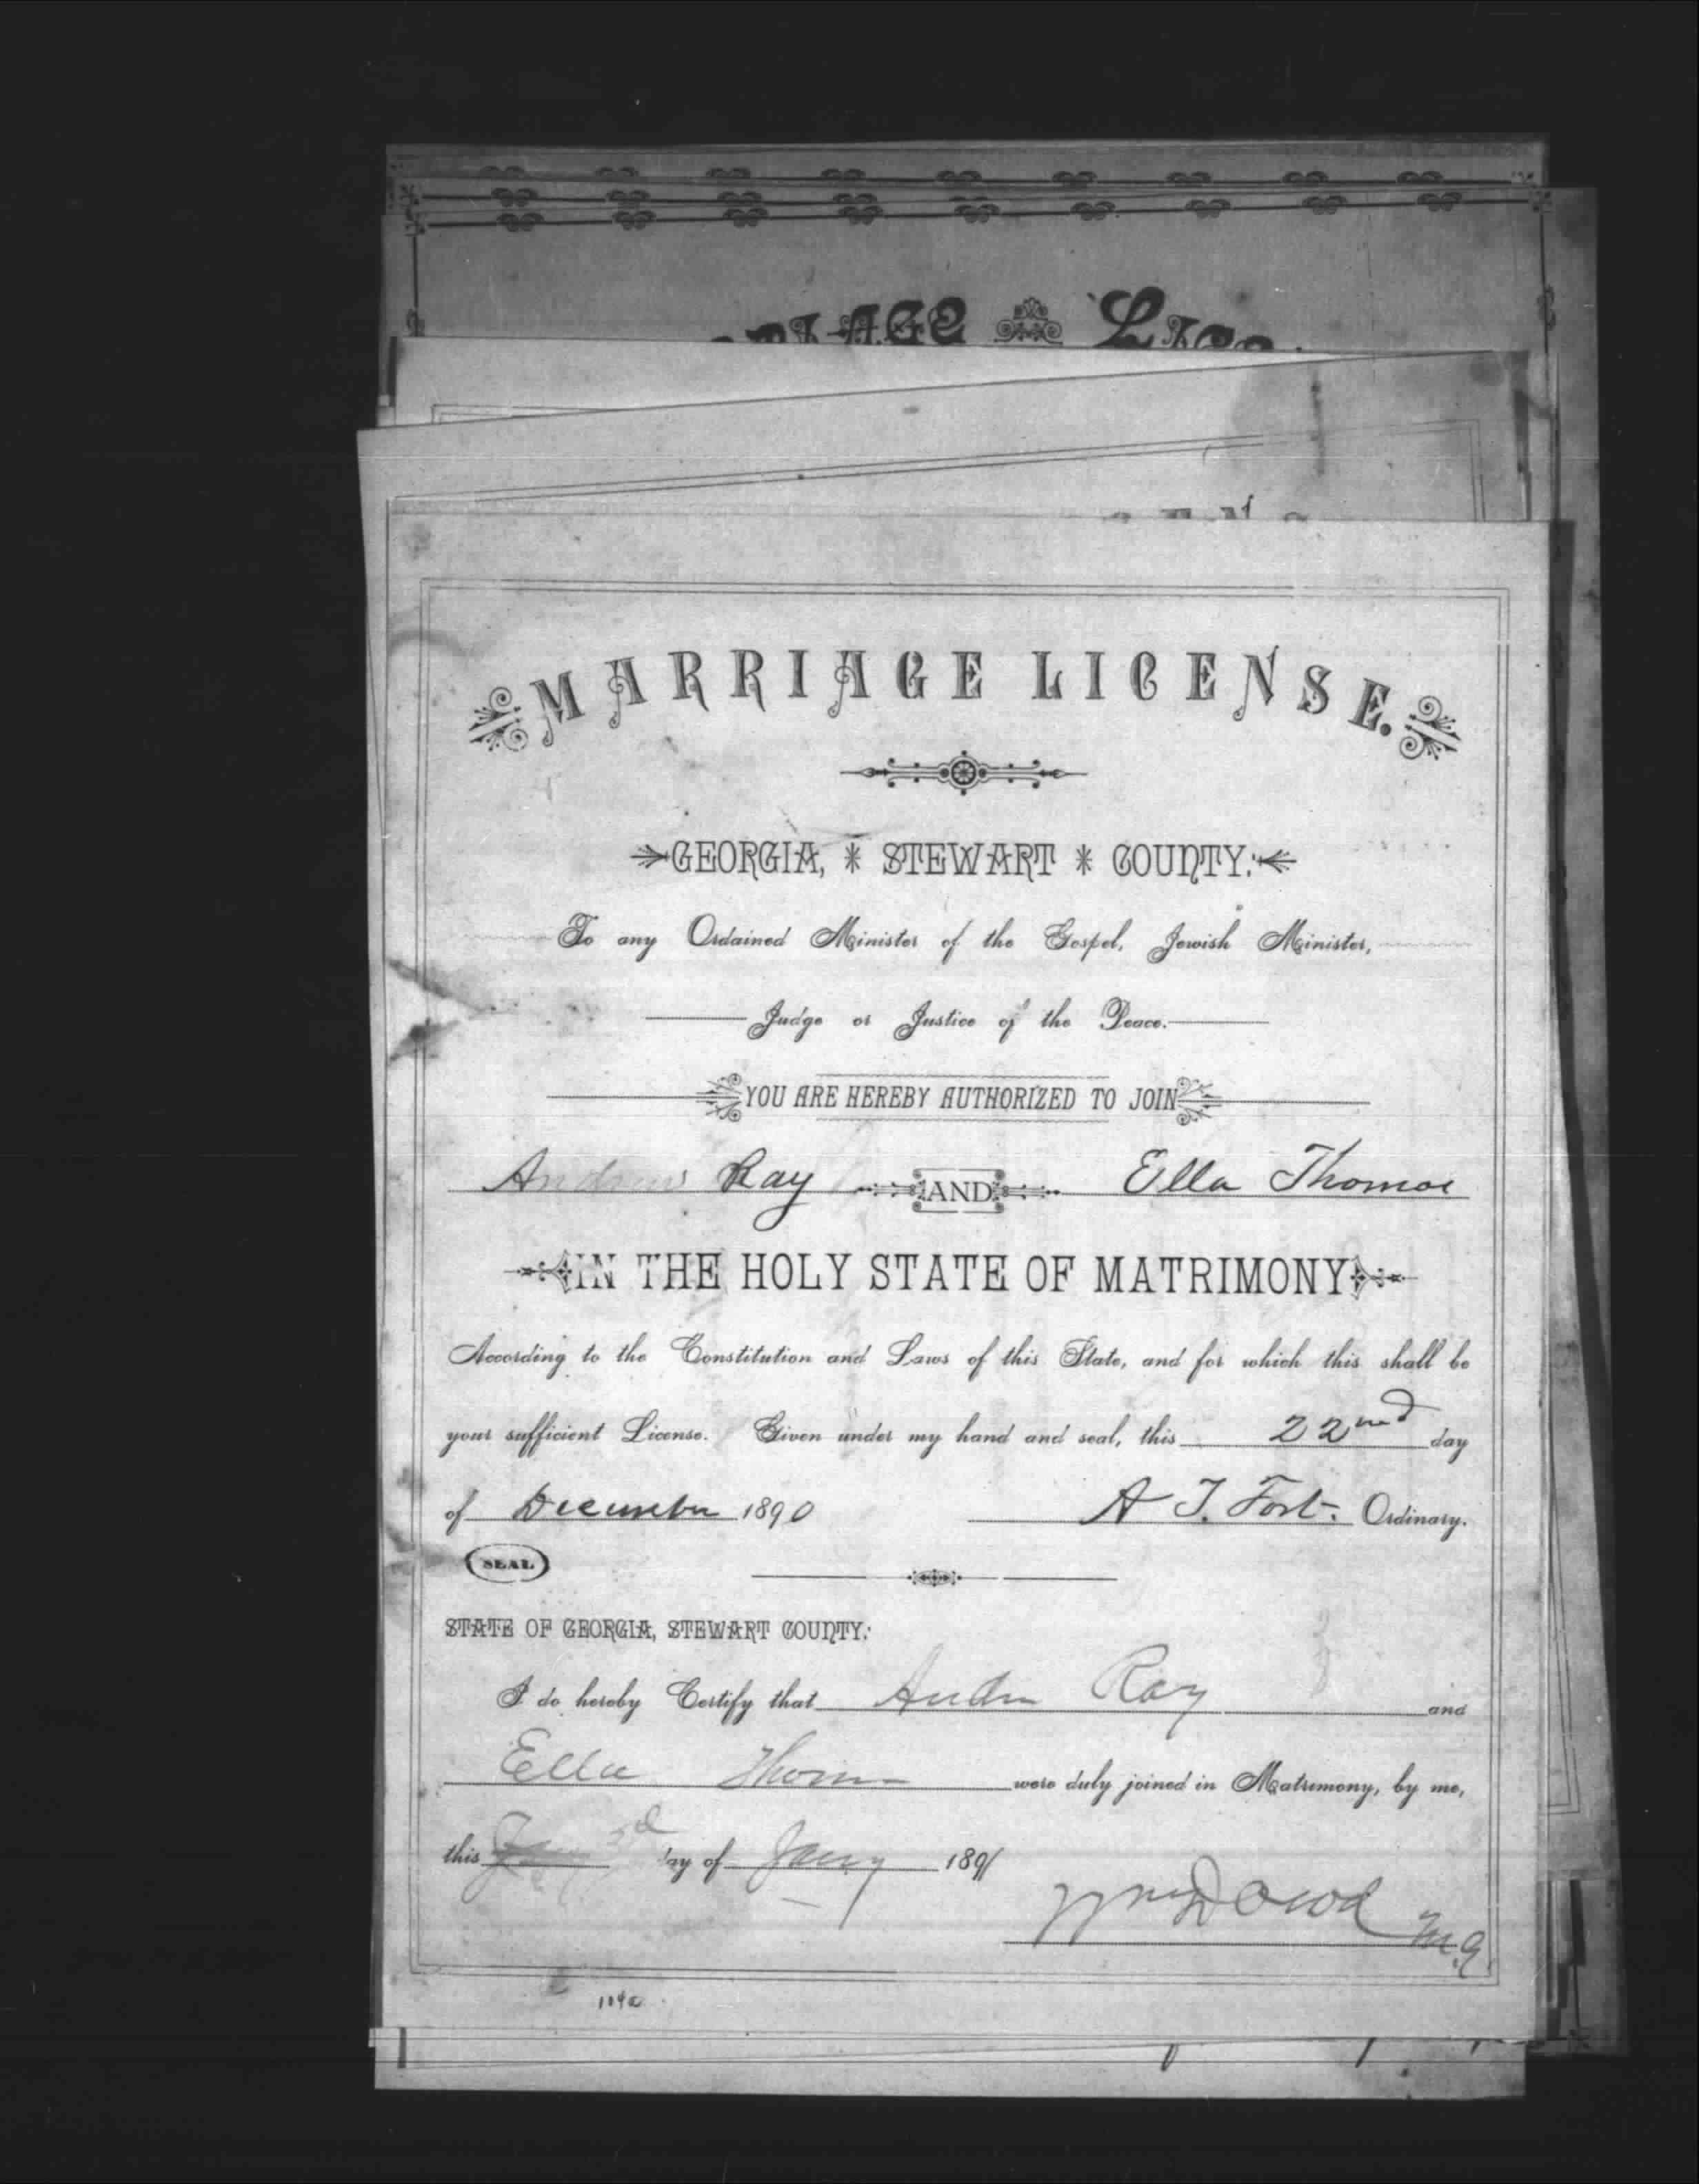 MARRIAGE LICENSE.
GEORGIA, * STEWART * COUNTY:
To any Ordained Minister of the Gospel, Jewish Minister,
Judge or Justice of the Peace.
YOU ARE HEREBY AUTHORIZED TO JOIN
Andrew Ray AND Ella Thomas
IN THE HOLY STATE OF MATRIMONY
According to the Constitution and Laws of this State, and for which this shall be
your sufficient License. Given under my hand and seal, this 22nd day
of December 1890 A T. Fort. Ordinary.
SEAL
STATE OF GEORGIA, STEWART COUNTY:
I do hereby Certify that Andrew Ray and
Ella Thomas were duly joined in Matrimony, by me,
this 3d day of Jany 1891
Wm Dowd M.G.